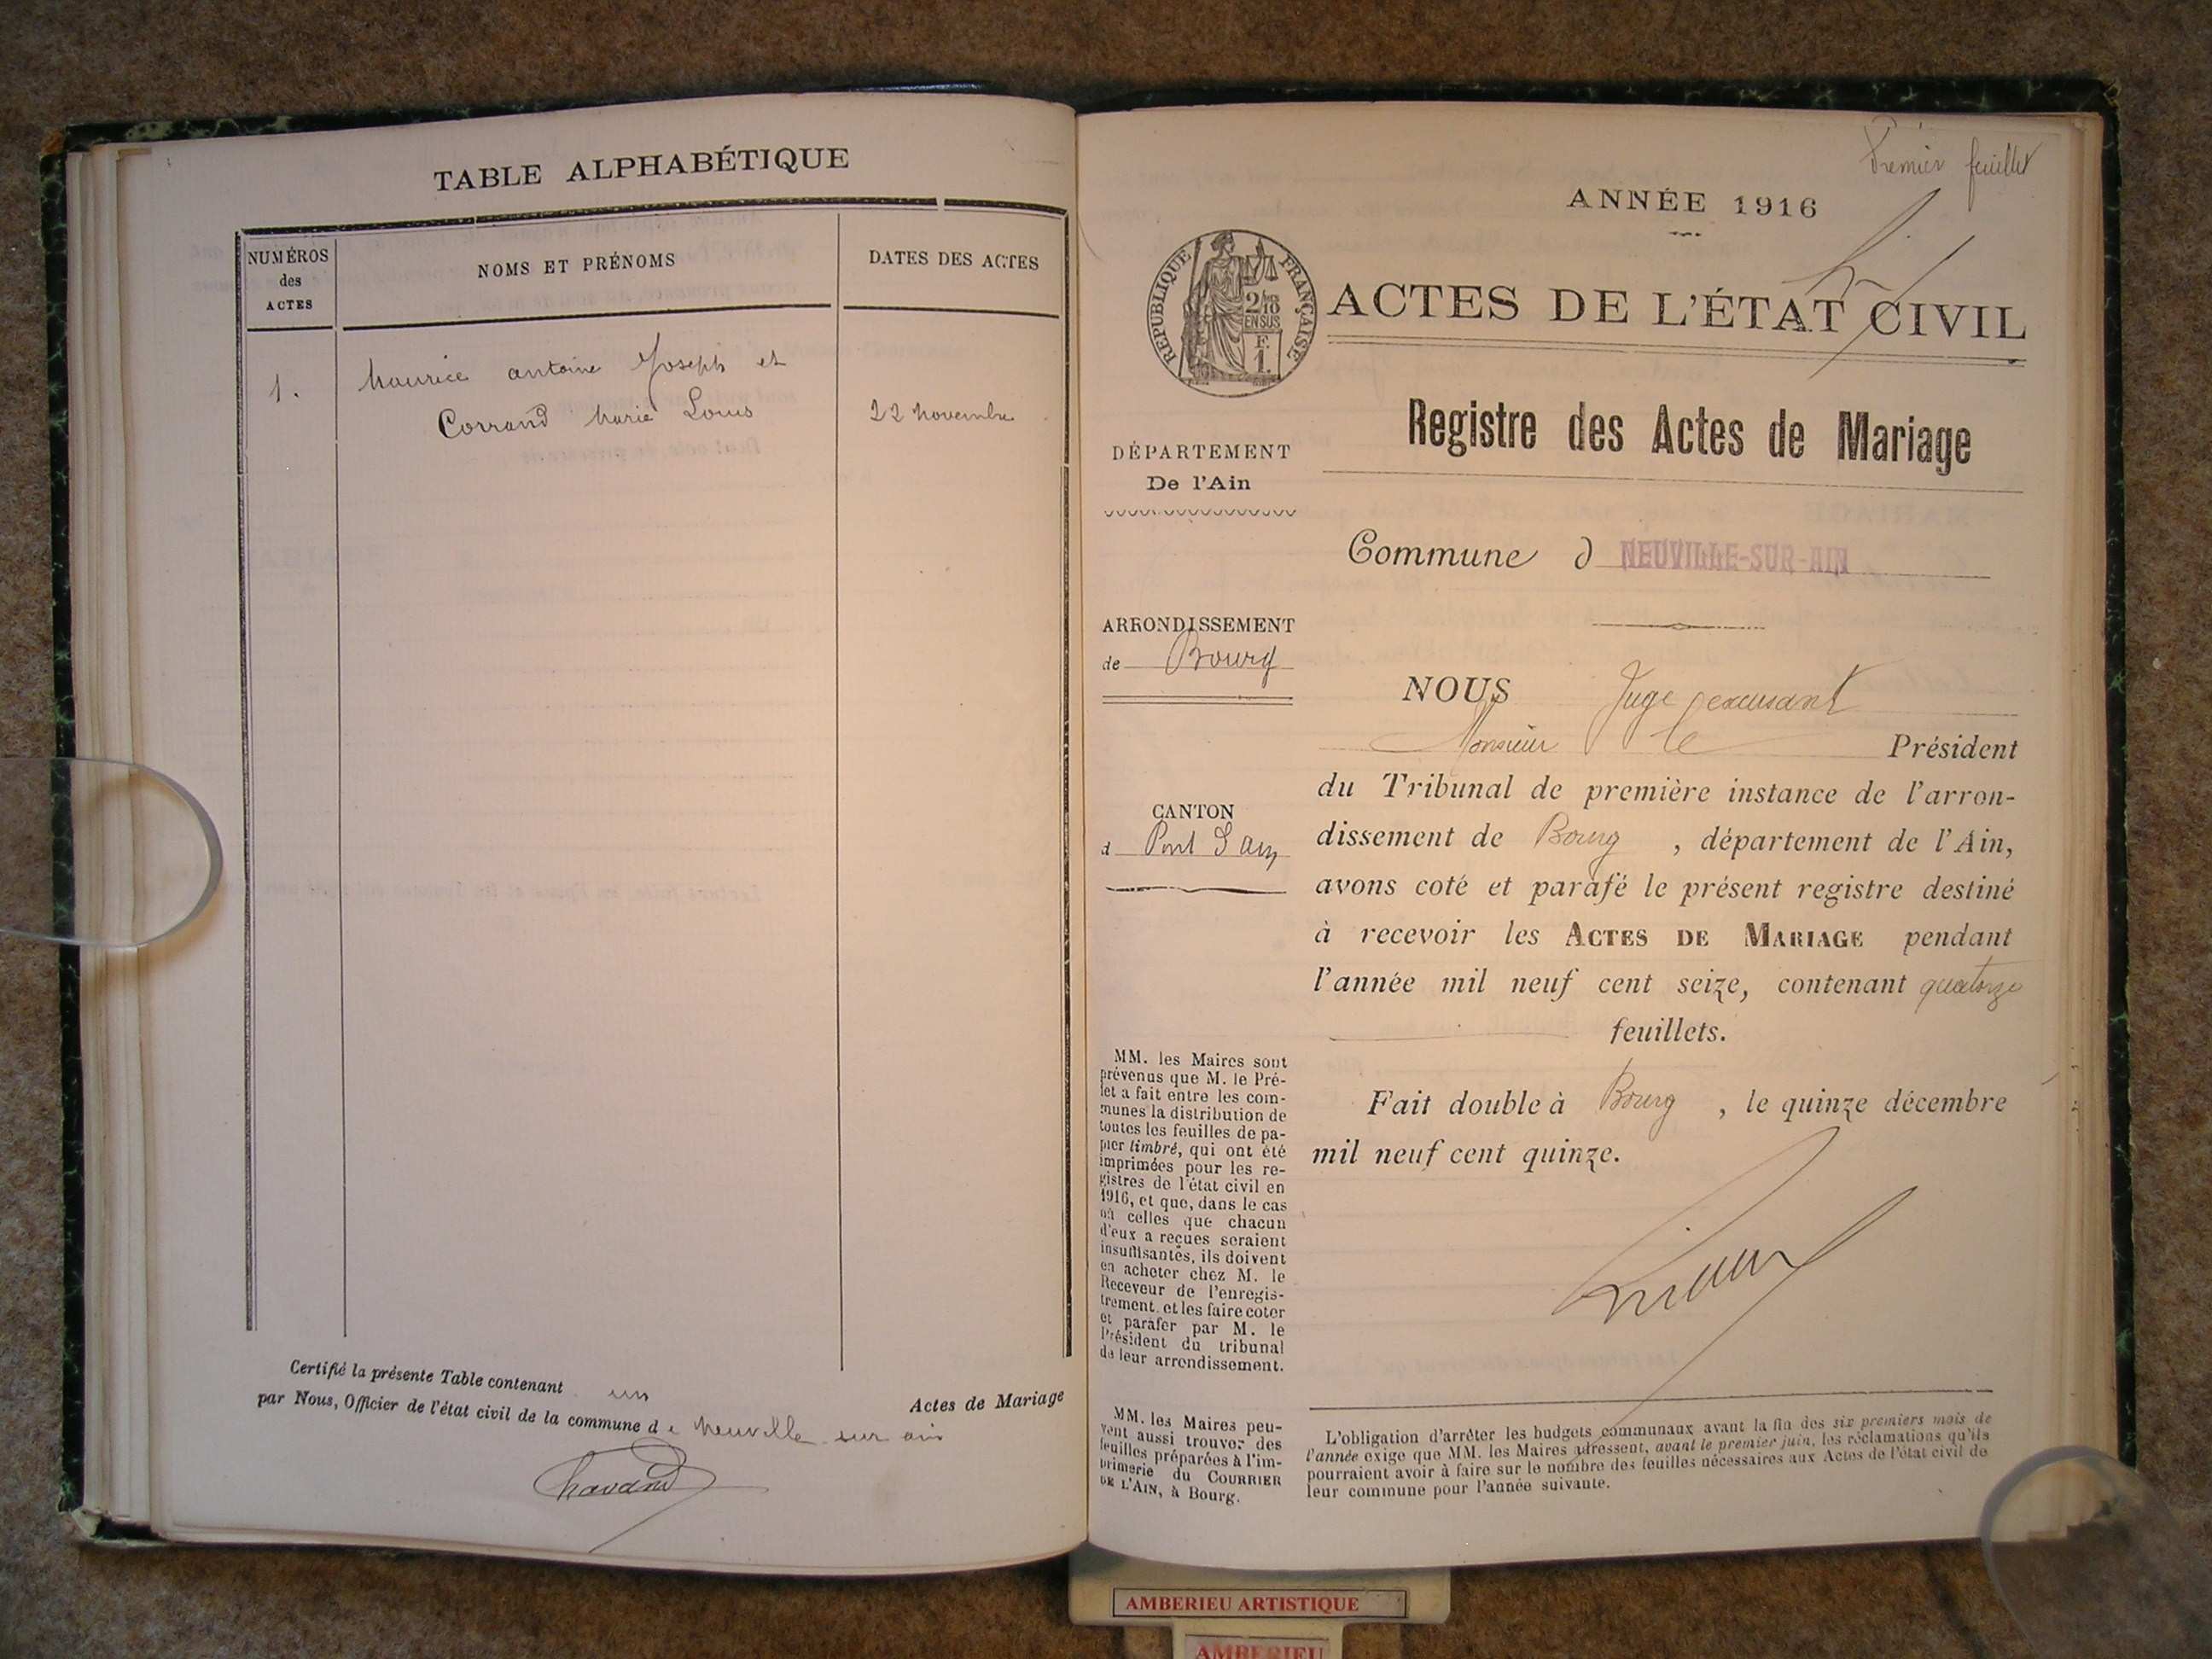 TABLE ALPHABÉTIQUE
NUMÉROS
des
ACTES
NOMS ET PRÉNOMS
DATES DES ACTES
1.
Maurice antoine Joseph et
Corrand Marie Louis
22 novembre
Certifié la présente Table contenant un Actes de Mariage
par Nous, Officier de l'état civil de la commune d e Neuville sur ain
Premier feuillet
ANNÉE 1916
RÉPUBLIQUE FRANÇAISE
2/10
EN SUS
F.
1.
ACTES DE L'ÉTAT CIVIL
Registre des Actes de Mariage
DÉPARTEMENT
De l'Ain
Commune d NEUVILLE-SUR-AIN
ARRONDISSEMENT
de Bourg
CANTON
d Pont d'Ain
NOUS Juge
Monsieur le Président
du Tribunal de première instance de l'arron-
dissement de Bourg , département de l'Ain,
avons coté et parafé le présent registre destiné
à recevoir les ACTES DE MARIAGE pendant
l'année mil neuf cent seize, contenant quatorze
feuillets.
Fait double à Bourg , le quinze décembre
mil neuf cent quinze.
MM. les Maires sont
prévenus que M. le Pré-
fet a fait entre les com-
munes la distribution de
toutes les feuilles de pa-
pier timbré, qui ont été
imprimées pour les re-
gistres de l'état civil en
1916, et que, dans le cas
où celles que chacun
d'eux a reçues seraient
insuffisantes, ils doivent
en acheter chez M. le
Receveur de l'enregis-
trement. et les faire coter
et parafer par M. le
Président du tribunal
de leur arrondissement.
MM. les Maires peu-
vent aussi trouver des
feuilles préparées à l'im-
primerie du COURRIER
DE L'AIN, à Bourg.
L'obligation d'arrêter les budgets communaux avant la fin des six premiers mois de
l'année exige que MM. les Maires adressent, avant le premier juin, les réclamations qu'ils
pourraient avoir à faire sur le nombre des feuilles nécessaires aux Actes de l'état civil de
leur commune pour l'année suivante.
AMBERIEU ARTISTIQUE
AMBERIEU